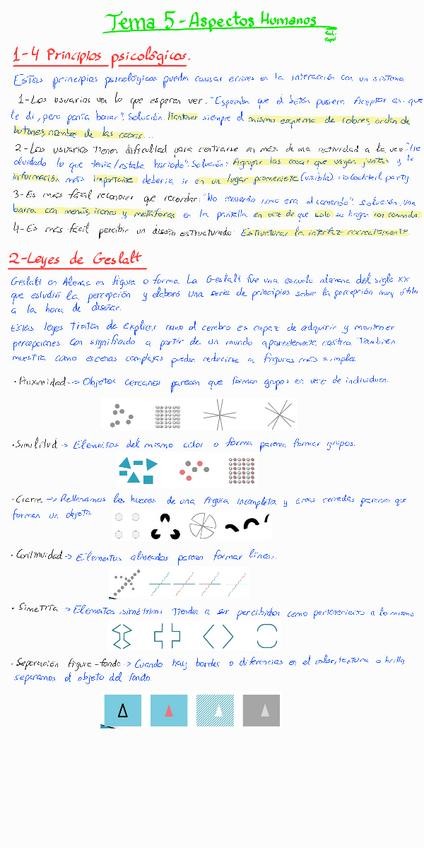 Tema 5 - Aspectos Humanos
1-4 Principios psicológicos.
Estos principios psicológicos pueden causar errores en la interacción con un sistema
1-Los usuarios ven lo que esperan ver. "Esperaba que el botón pusiera Aceptar así que
le di, pero ponía borrar". Solución: Mantener siempre el mismo esquema de colores, orden de
botones, nombre de las cosas...
2-Los usuarios tienen dificultad para centrarse en más de una actividad a la vez. "He
olvidado lo que tenía/estaba haciendo". Solución: Agrupar las cosas que vayan juntas y la
información más importante debería ir en un lugar prominente (visible). cocktail party
3-Es más fácil reconocer que recordar. "No recuerdo como era el comando". Solución, una
barra con menús, iconos y metáforas en la pantalla en vez de que solo se haga con comando
4-Es más fácil percibir un diseño estructurado. Estructurar la interfaz
2-Leyes de Gestalt
Gestalt en Alemán es figura o forma. La Gestalt fue una escuela alemana del siglo XX
que estudió la percepción y elaboró una serie de principios sobre la percepción muy útiles
a la hora de diseñar.
Estas leyes tratan de explicar como el cerebro es capaz de adquirir y mantener
percepciones con significado a partir de un mundo aparentemente caótico. También
muestra como escenas complejas pueden reducirse a figuras más simples.
·Proximidad -> Objetos cercanos parecen que forman grupos en vez de individuos.
·Similitud -> Elementos del mismo color o forma parecen formar grupos.
·Cierre -> Rellenamos los huecos de una figura incompleta y áreas cerradas parecen que
forman un objeto
·Continuidad -> Elementos alineados parecen formar líneas.
·Simetría -> Elementos simétricos tienden a ser percibidos como pertenecientes a lo mismo
·Separación figura-fondo -> Cuando hay bordes o diferencias en el color, textura o brillo
separamos el objeto del fondo